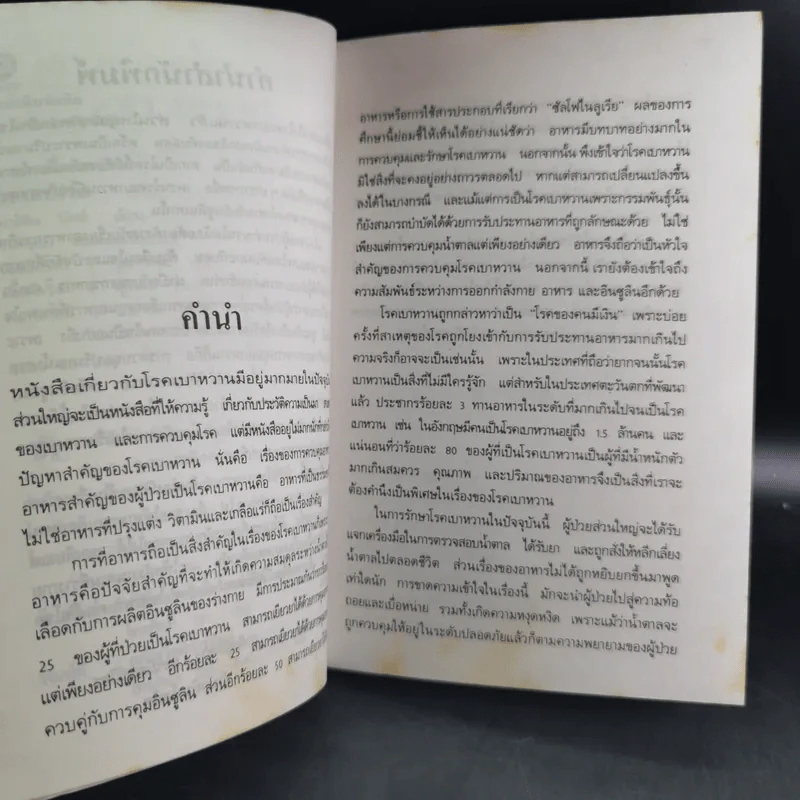 คำนำ
หนังสือเกี่ยวกับโรคเบาหวานมีอยู่มากมายในปัจจุบัน
ส่วนใหญ่จะเป็นหนังสือที่ให้ความรู้ เกี่ยวกับประวัติความเป็นมา
ของเบาหวาน และการควบคุมโรค แต่มีหนังสืออยู่ไม่มากนัก
ปัญหาสำคัญของโรคเบาหวาน นั่นคือ เรื่องของการควบคุมอาหาร
อาหารสำคัญของผู้ป่วยเป็นโรคเบาหวานคือ อาหารที่เป็นธรรมชาติ
ไม่ใช่อาหารที่ปรุงแต่ง วิตามินและเกลือแร่ก็ถือเป็นเรื่องสำคัญ
การที่อาหารถือเป็นสิ่งสำคัญในเรื่องของโรคเบาหวานก็เพราะ
อาหารคือปัจจัยสำคัญที่จะทำให้เกิดความสมดุลระหว่าง
เลือดกับการผลิตอินซูลินของร่างกาย มีการประมาณกันว่า
25 ของผู้ที่ป่วยเป็นโรคเบาหวาน สามารถเยียวยาได้ด้วย
แต่เพียงอย่างเดียว อีกร้อยละ 25 สามารถเยียวยาได้ด้วย
ควบคู่กับการคุมอินซูลิน ส่วนอีกร้อยละ 50 สามารถเยียวยา
อาหารหรือการใช้สารประกอบที่เรียกว่า "ซัลโฟไนลูเรีย" ผลของการ
ศึกษานี้ย่อมชี้ให้เห็นได้อย่างแน่ชัดว่า อาหารมีบทบาทอย่างมากใน
การควบคุมและรักษาโรคเบาหวาน นอกจากนั้น พึงเข้าใจว่าโรคเบาหวาน
มิใช่สิ่งที่จะคงอยู่อย่างถาวรตลอดไป หากแต่สามารถเปลี่ยนแปลงขึ้น
ลงได้ในบางกรณี และแม้แต่การเป็นโรคเบาหวานเพราะกรรมพันธุ์นั้น
ก็ยังสามารถบำบัดได้ด้วยการรับประทานอาหารที่ถูกลักษณะด้วย ไม่ใช่
เพียงแต่การควบคุมน้ำตาลแต่เพียงอย่างเดียว อาหารจึงถือว่าเป็นหัวใจ
สำคัญของการควบคุมโรคเบาหวาน นอกจากนี้ เรายังต้องเข้าใจถึง
ความสัมพันธ์ระหว่างการออกกำลังกาย อาหาร และอินซูลินอีกด้วย
โรคเบาหวานถูกกล่าวหาว่าเป็น "โรคของคนมีเงิน" เพราะบ่อย
ครั้งที่สาเหตุของโรคถูกโยงเข้ากับการรับประทานอาหารมากเกินไป
ความจริงก็อาจจะเป็นเช่นนั้น เพราะในประเทศที่ถือว่ายากจนนั้นโรค
เบาหวานเป็นสิ่งที่ไม่มีใครรู้จัก แต่สำหรับในประเทศตะวันตกที่พัฒนา
แล้ว ประชากรร้อยละ 3 ทานอาหารในระดับที่มากเกินไปจนเป็นโรค
เบาหวาน เช่น ในอังกฤษมีคนเป็นโรคเบาหวานอยู่ถึง 1.5 ล้านคน และ
แน่นอนที่ว่าร้อยละ 80 ของผู้ที่เป็นโรคเบาหวานเป็นผู้ที่มีน้ำหนักตัว
มากเกินสมควร คุณภาพ และปริมาณของอาหารจึงเป็นสิ่งที่เราจะ
ต้องคำนึงเป็นพิเศษในเรื่องของโรคเบาหวาน
ในการรักษาโรคเบาหวานในปัจจุบันนี้ ผู้ป่วยส่วนใหญ่จะได้รับ
แจกเครื่องมือในการตรวจสอบน้ำตาล ได้รับยา และถูกสั่งให้หลีกเลี่ยง
น้ำตาลไปตลอดชีวิต ส่วนเรื่องของอาหารไม่ได้ถูกหยิบยกขึ้นมาพูด
เท่าใดนัก การขาดความเข้าใจในเรื่องนี้ มักจะนำผู้ป่วยไปสู่ความท้อ
ถอยและเบื่อหน่าย รวมทั้งเกิดความหงุดหงิด เพราะแม้ว่าน้ำตาลจะ
ถูกควบคุมให้อยู่ในระดับปลอดภัยแล้วก็ตามความพยายามของผู้ป่วย